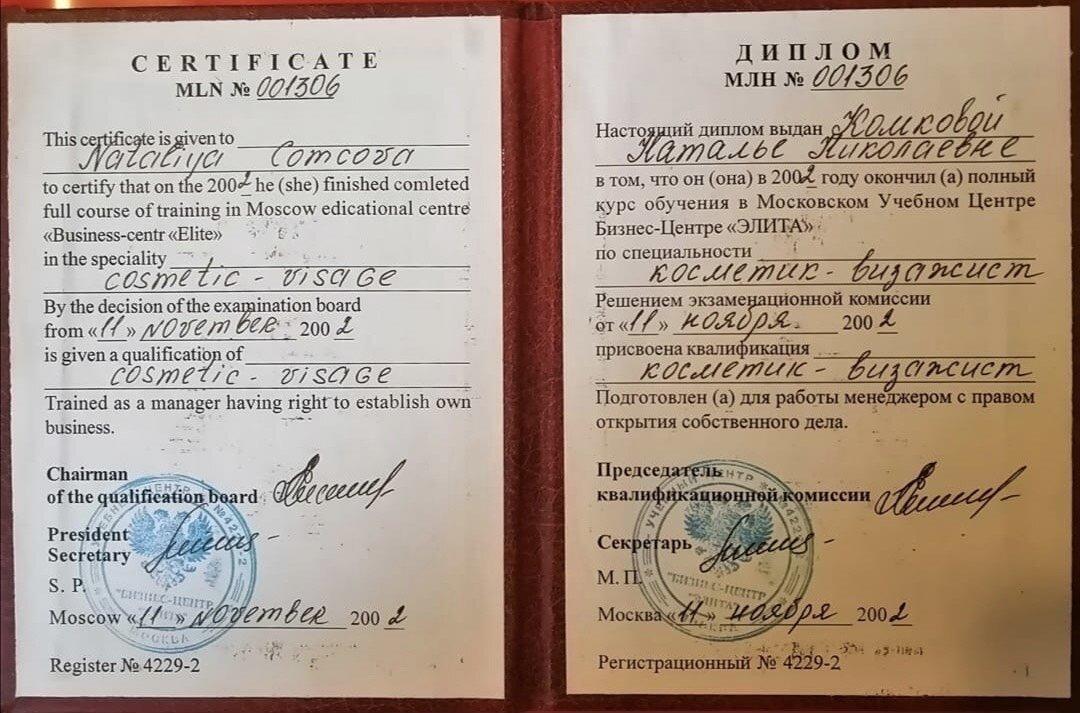 CERTIFICATE
MLN № 001306
This certificate is given to
Nataliya Comcova
to certify that on the 2002 he (she) finished comleted
full course of training in Moscow edicational centre
«Business-centr «Elite»
in the speciality
cosmetic - visage
By the decision of the examination board
from «11» november 2002
is given a qualification of
cosmetic - visage
Trained as a manager having right to establish own
business.
Chairman
of the qualification board
President
Secretary
S. P.
Moscow «11» november 2002
Register № 4229-2
УЧЕБНЫЙ ЦЕНТР №4229-2
"БИЗНЕС-ЦЕНТР
"ЭЛИТА"
МОСКВА
ДИПЛОМ
МЛН № 001306
Настоящий диплом выдан Комковой
Наталье Николаевне
в том, что он (она) в 2002 году окончил (а) полный
курс обучения в Московском Учебном Центре
Бизнес-Центре «ЭЛИТА»
по специальности
косметик - визажист
Решением экзаменационной комиссии
от «11» ноября 2002
присвоена квалификация
косметик - визажист
Подготовлен (а) для работы менеджером с правом
открытия собственного дела.
Председатель
квалификационной комиссии
Секретарь
М. П.
Москва «11» ноября 2002
Регистрационный № 4229-2
УЧЕБНЫЙ ЦЕНТР №4229-2
"БИЗНЕС-ЦЕНТР
"ЭЛИТА"
МОСКВА